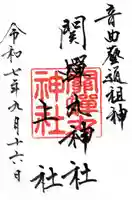 音曲藝道祖神
関蟬丸神社
上社
令和七年九月十六日